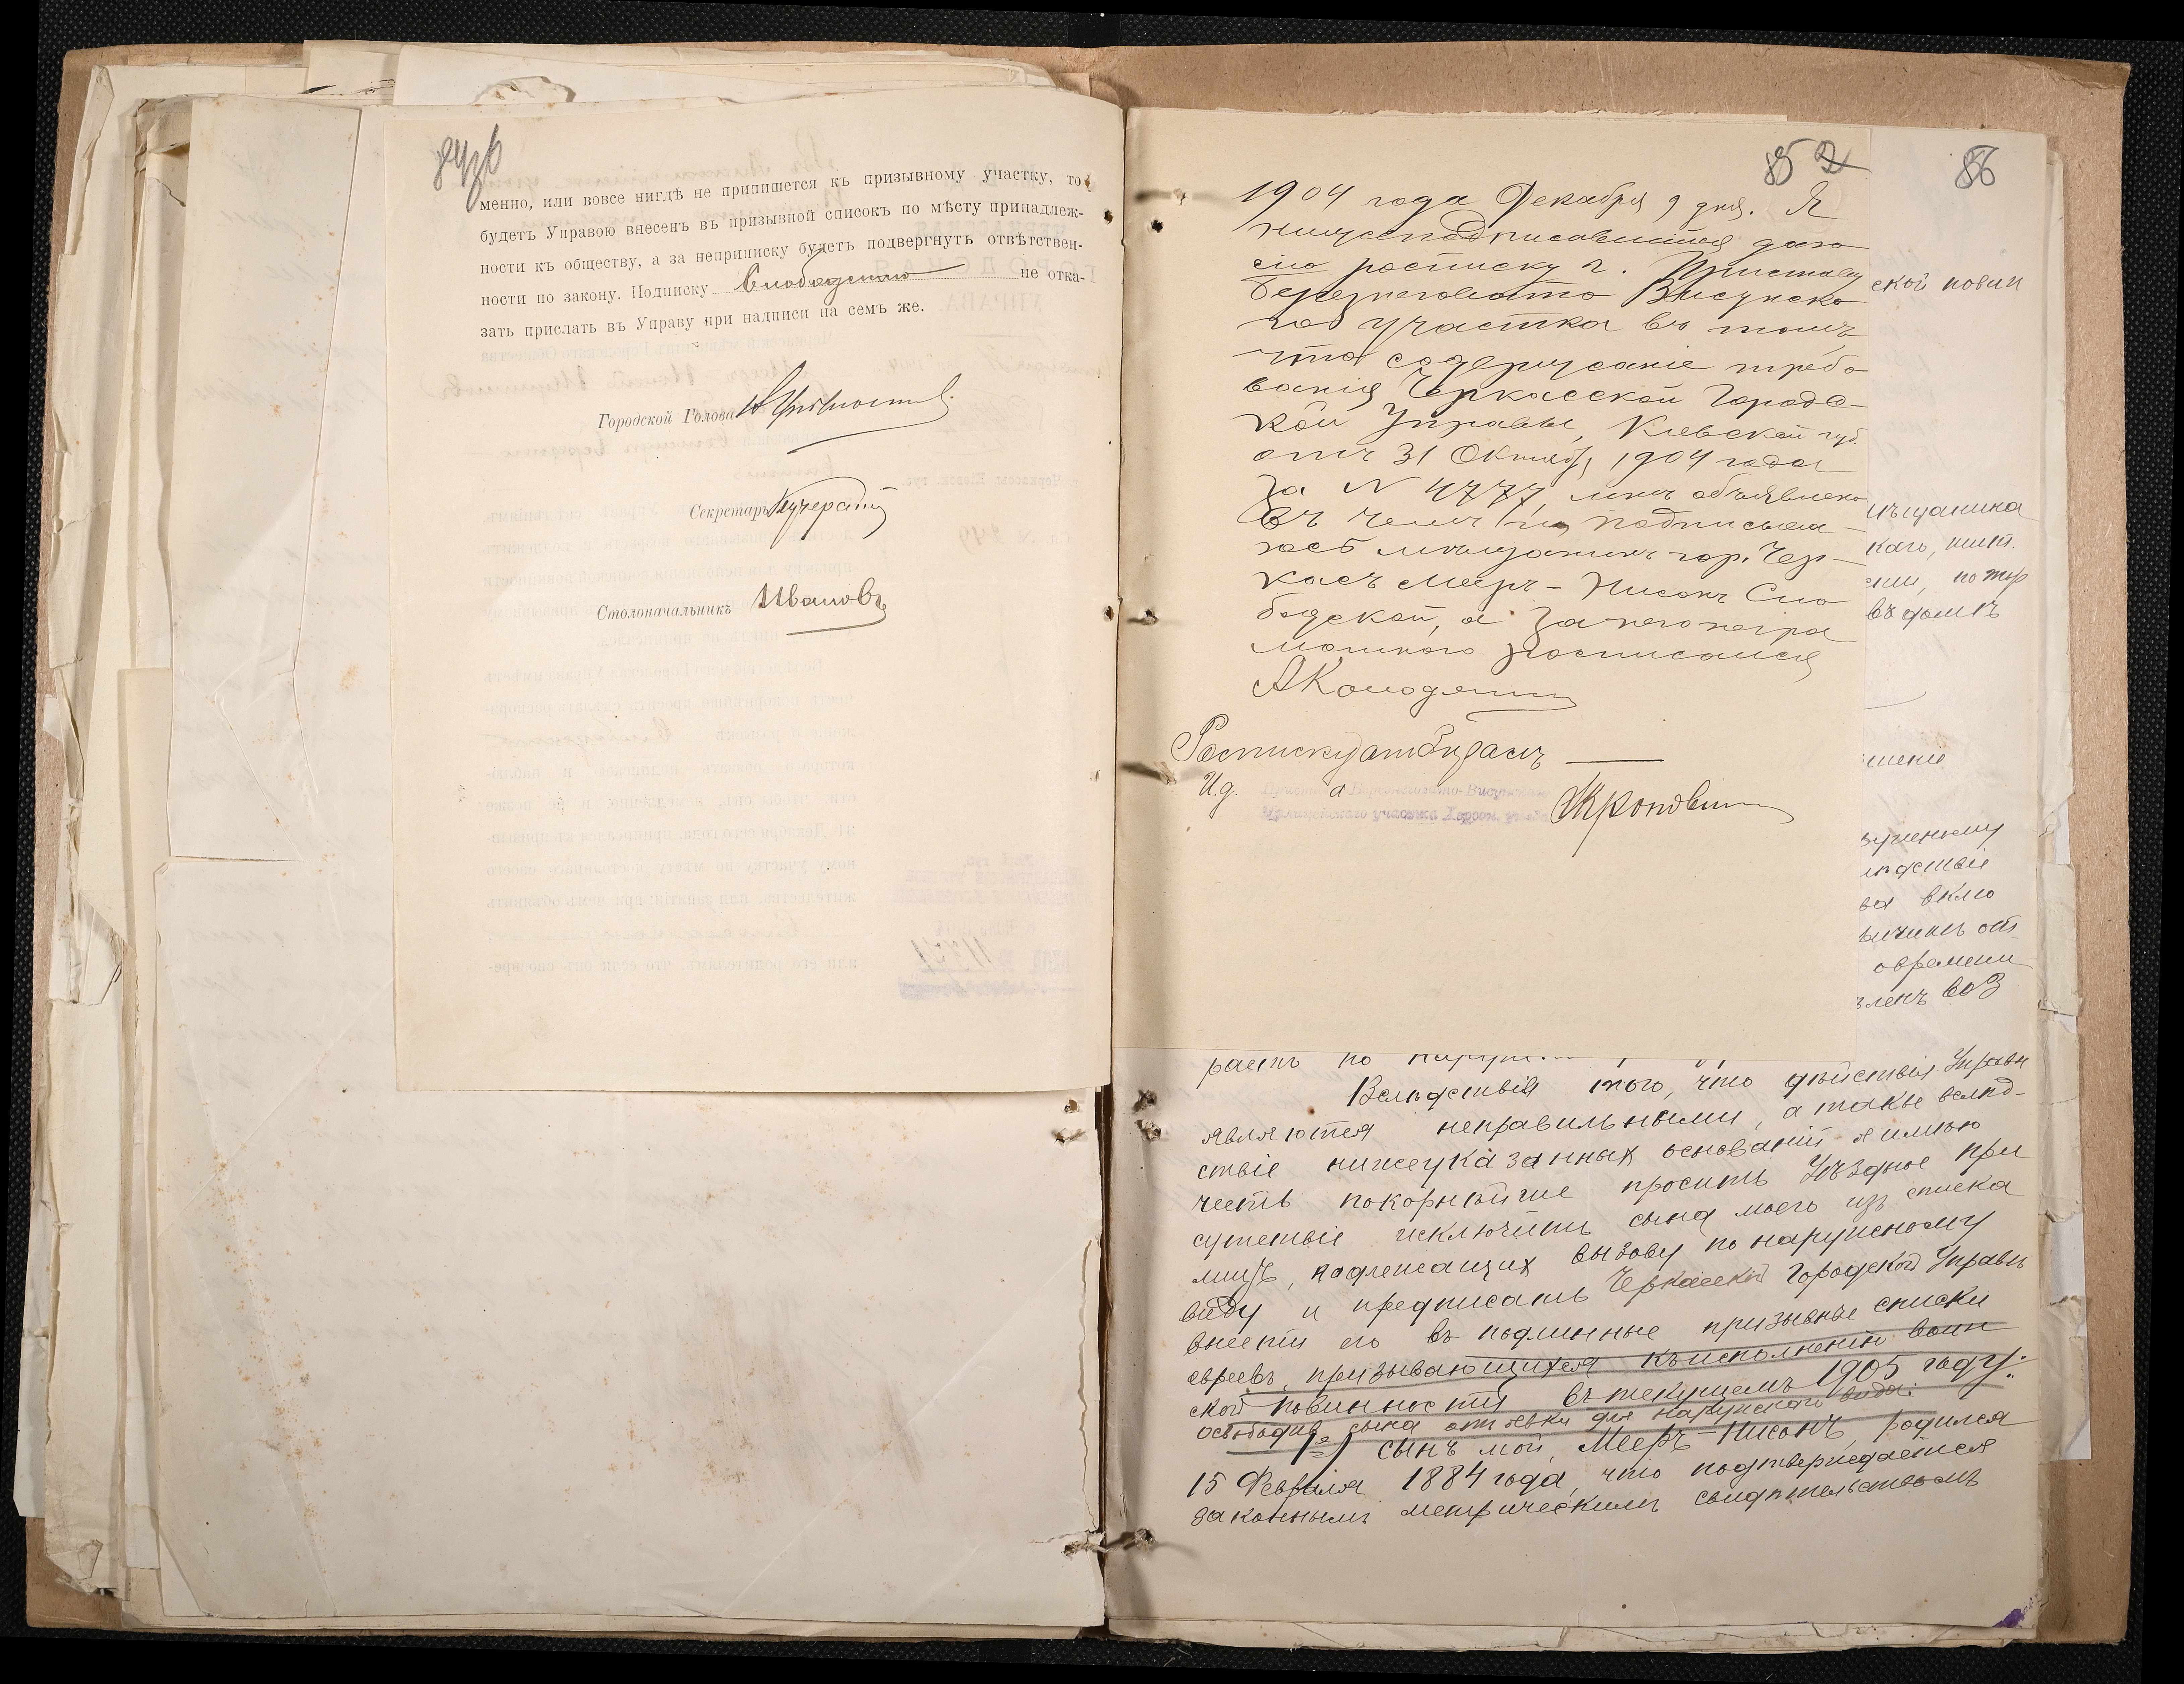 менно, или вовсе нигдѣ не припишется къ призывному участку, то
будетъ Управою внесенъ въ призывной списокъ по мѣсту принадлеж-
ности къ обществу, а за неприписку будетъ подвергнутъ отвѣтствен-
ности по закону. Подписку Слободскаго не отка-
зать прислать въ Управу при надписи на семъ же.
Городской Голова
Секретарь
Столоначальникъ Ивановъ
85 2
1904 года Декабря 9 дня. Я
нижеподписавшійся даю
сію росписку г. Приставу
Березнеговато Висунска
го участка въ томъ
что содержаніе требо
ванія Черкасской Городс-
кой Управы, Кіевской губ.
отъ 31 Октября 1904 года
за N 4777, мнѣ объявлено
въ чемъ и подписыва-
юсь мѣщанинъ гор. Чер-
касъ Меер-Нисонъ Сло
бодской, а за него негра
мотнаго росписался
АКолодянт
Росписку отобралъ
И.д.
86
ской повин
мѣщанина
каго, жит.
по тор
въ домѣ
шеніе
ружному
лѣдствіе
ва вклю
овремени
членъ воз
раетъ по
Вслѣдствіе того, что дѣйствія Управы
являются неправильными, а также вслѣд-
ствіе нижеуказанныхъ основаній я имѣю
честь покорнѣйше просить Уѣздное при
сутствіе исключить сына моего изъ списка
лицъ, подлежащихъ вызову по наружному
виду и предписать Черкасской Городской Управѣ
внести его въ подлинные призывные списки
евреевъ, призывающихся къ исполненію воин
ской повинности въ текущемъ 1905 году:
освободив сына от явки для наружнаго вида:
1е) Сынъ мой, Мееръ-Нисонъ, родился
15 Февраля 1884 года, что подтверждается
законнымъ метрическимъ свидѣтельствомъ